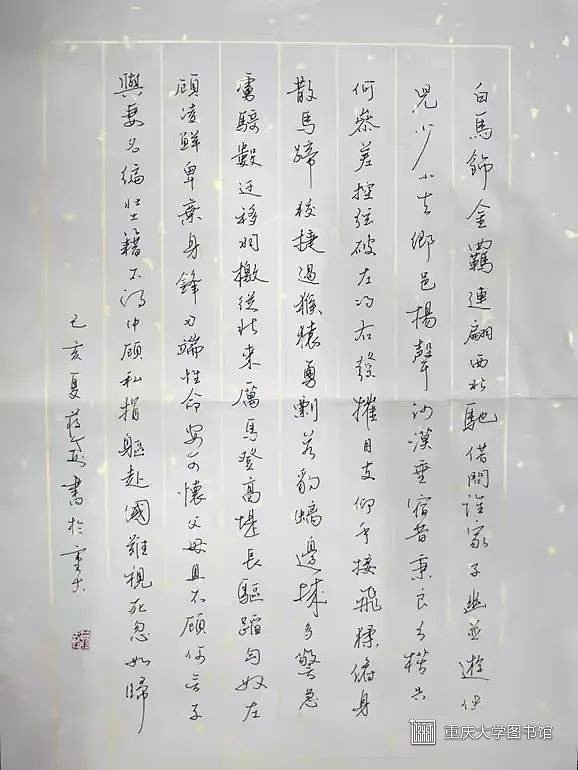 白馬飾金羈連翩西北馳借問誰家子幽並遊俠
兒少小去鄉邑揚聲沙漠垂宿昔秉良弓楛矢
何參差控弦破左的右發摧月支仰手接飛猱俯身
散馬蹄狡捷過猴猿勇剽若豹螭邊城多警急
虜騎數迁移羽檄從北來厲馬登高堤長驅蹈匈奴左
顧凌鮮卑棄身鋒刃端性命安可懷父母且不顧何言子
與妻名編壯士籍不得中顧私捐軀赴國難視死忽如歸
己亥夏書於重大
重庆大学图书馆